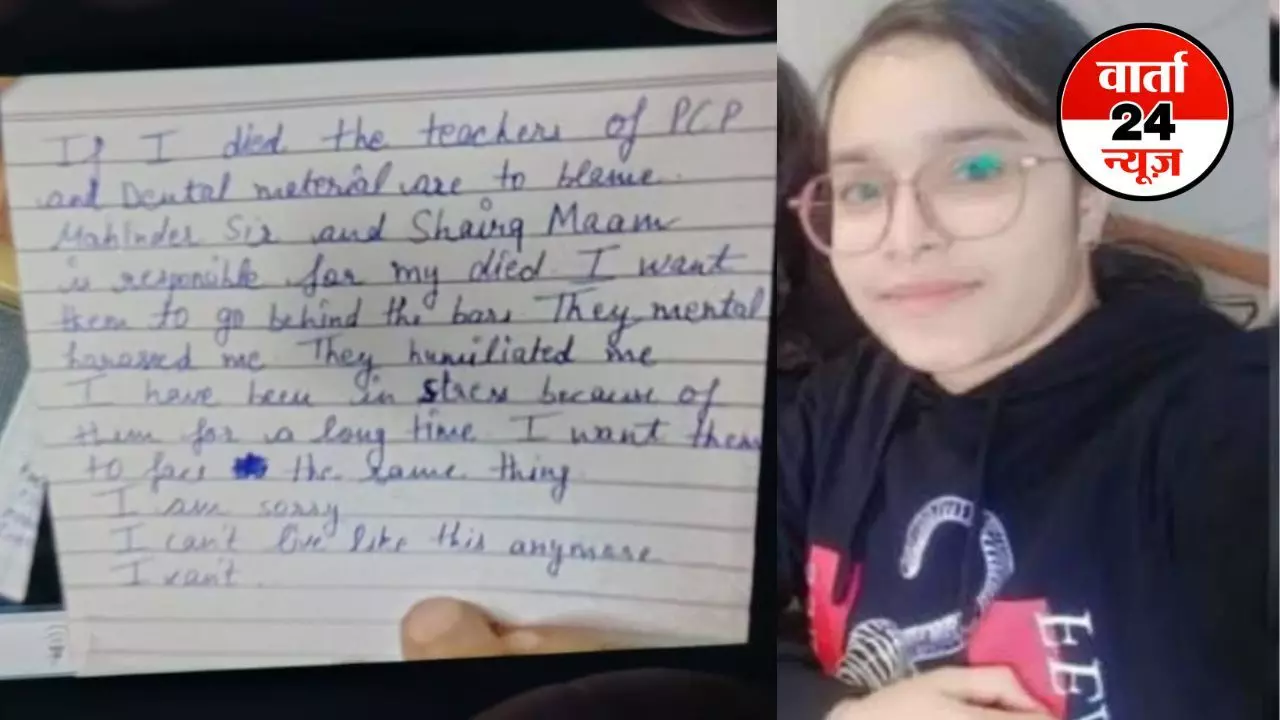 If I died the teachers of PCP
and Dental material are to blame.
Mahinder Sir and Shairq Maam
is responsible for my died. I want
them to go behind the bars. They mental
harassed me. They humiliated me
I have been in stress because of
them for a long time. I want them
to face the same thing
I am sorry
I can't live like this anymore
I can't.
वार्ता
24
न्यूज़